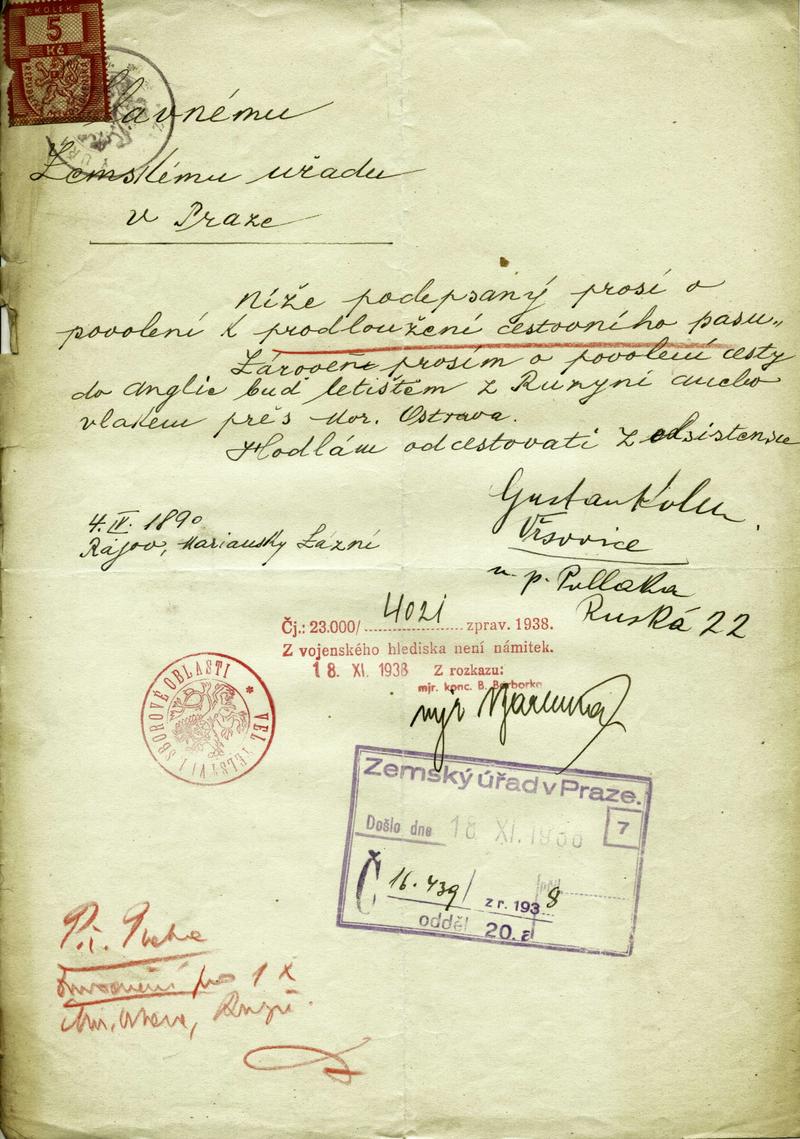 KOLEK
5
Kč
Slavnému
Zemskému uřadu
v Praze
Níže podepsaný prosí o
povolení k prodloužení cestovního pasu„
Zároveň prosím o povolení cesty
do Anglie buď letištěm z Ruzyní anebo
vlakem přes Mor. Ostrava.
Hodlám odcestovati z
Gustav Kohn
Vršovice
4. IV. 1890
Rájov, Mariansky Lázní
u p. Pollaka
Ruská 22
Čj.: 23.000/ 4021 zprav. 1938.
Z vojenského hlediska není námitek.
18. XI. 1938 Z rozkazu:
mjr. konc. B. Borborka
mjr
VELITELSTVÍ I SBOROVÉ OBLASTI *
Zemský úřad v Praze.
7
Došlo dne 18 XI. 1938
Č 16.439/ z r. 1938
odděl 20.a
Praha
pro 1 X